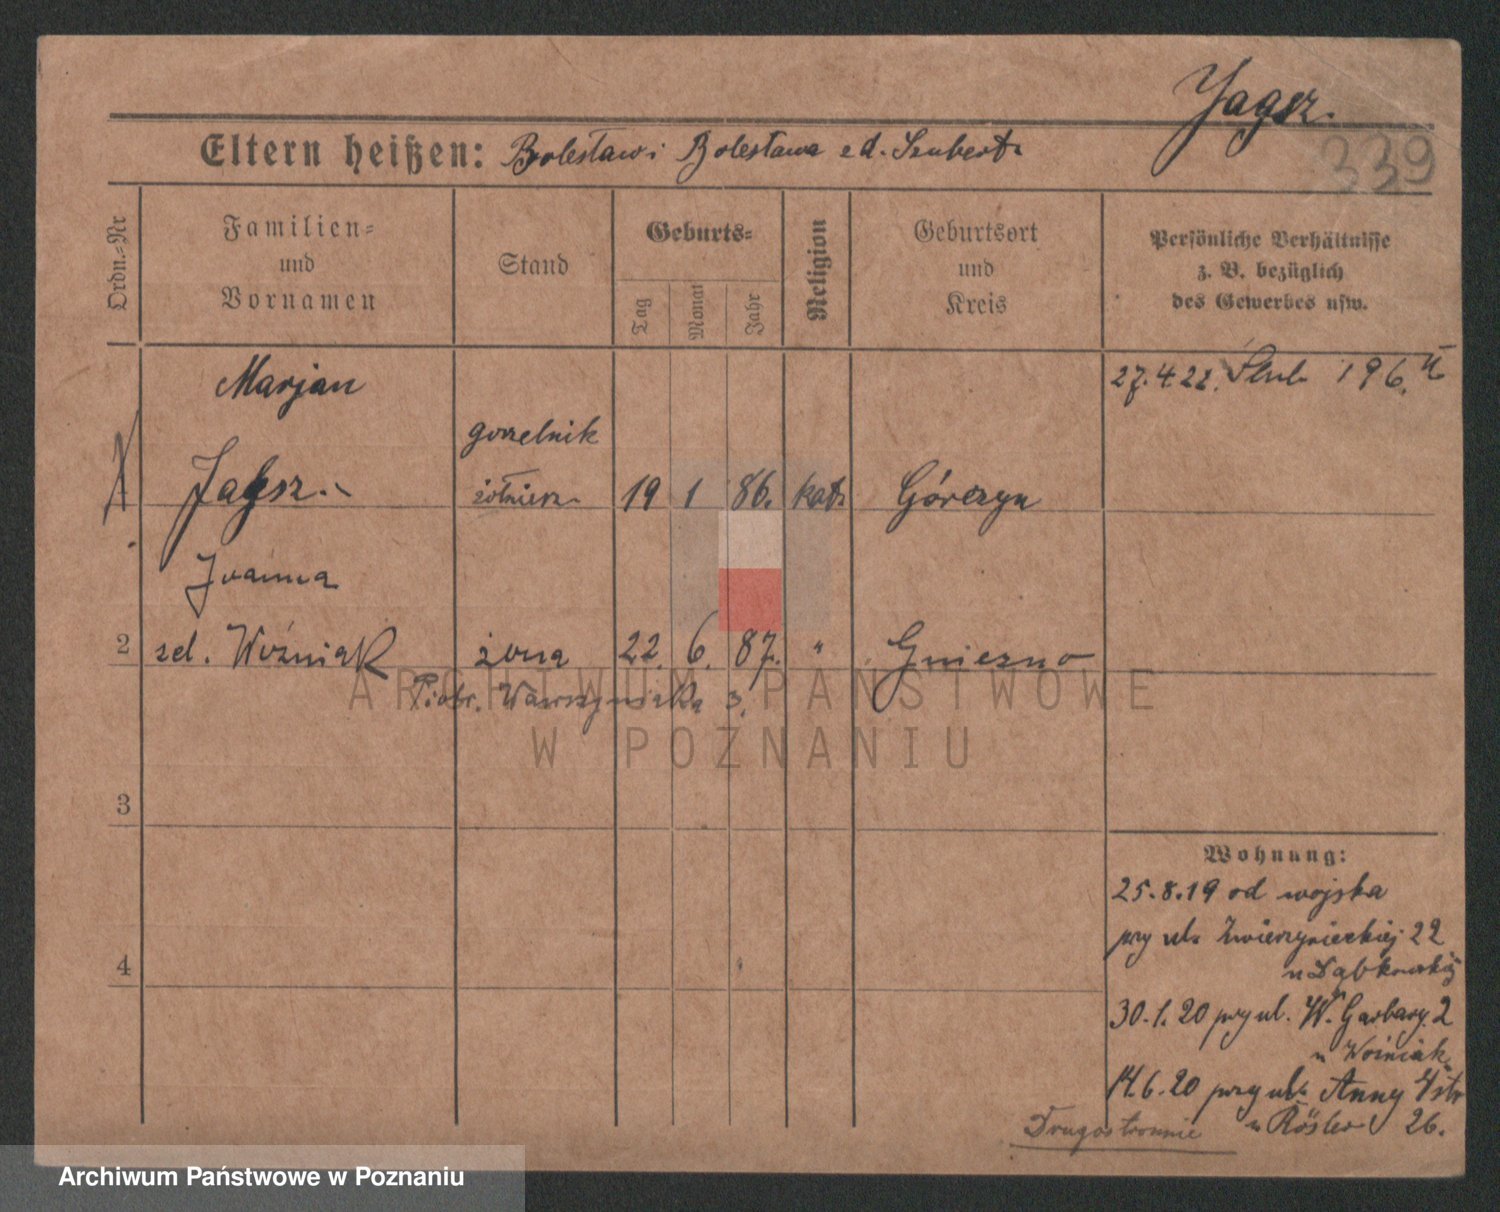 Jagsz.
339
Eltern heißen: Bolesław i Bolesława z d. Szubert
Ordn.-Nr
Familien-
und
Vornamen
Stand
Geburts-
Tag
Monat
Jahr
Religion
Geburtsort
und
Kreis
Persönliche Verhältnisse
z. B. bezüglich
des Gewerbes usw.
Marjan
27.4.22. Ślub 196.
gorzelnik
1 Jagsz. żołnierz 19 1 86. kat. Górczyn
Joanna
2 zd. Woźniak żona 22. 6. 87. " Gniezno
Piotr. Wawrzyniaka 3.
ARCHIWUM PAŃSTWOWE
W POZNANIU
3
4
Wohnung:
25.8.19 od wojska
przy ul. Zwierzynieckiej 22
u Dąbkowskiej
30.1.20 przy ul. W. Garbary 2
u Woźniak
14.6.20 przy ul. Anny 4
u Rösler 26.
Drugostronnie
Archiwum Państwowe w Poznaniu